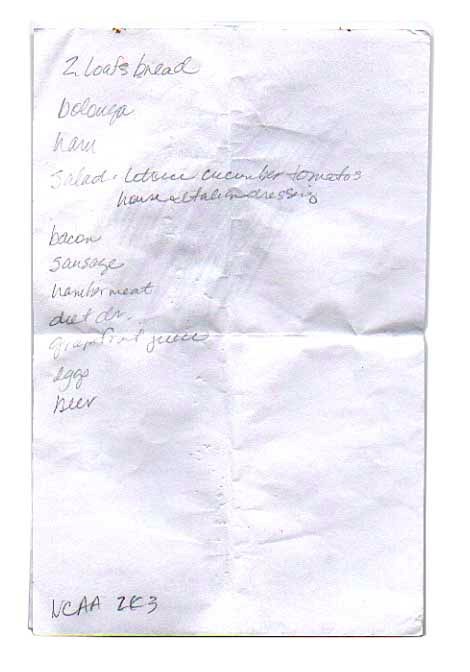 2 loafs bread
bolonga
ham
salad - lettuce cucumber tomatos
house & Italian dressing
bacon
sausage
hamber meat
diet dr.
grapefruit juice
eggs
beer
NCAA 2K3